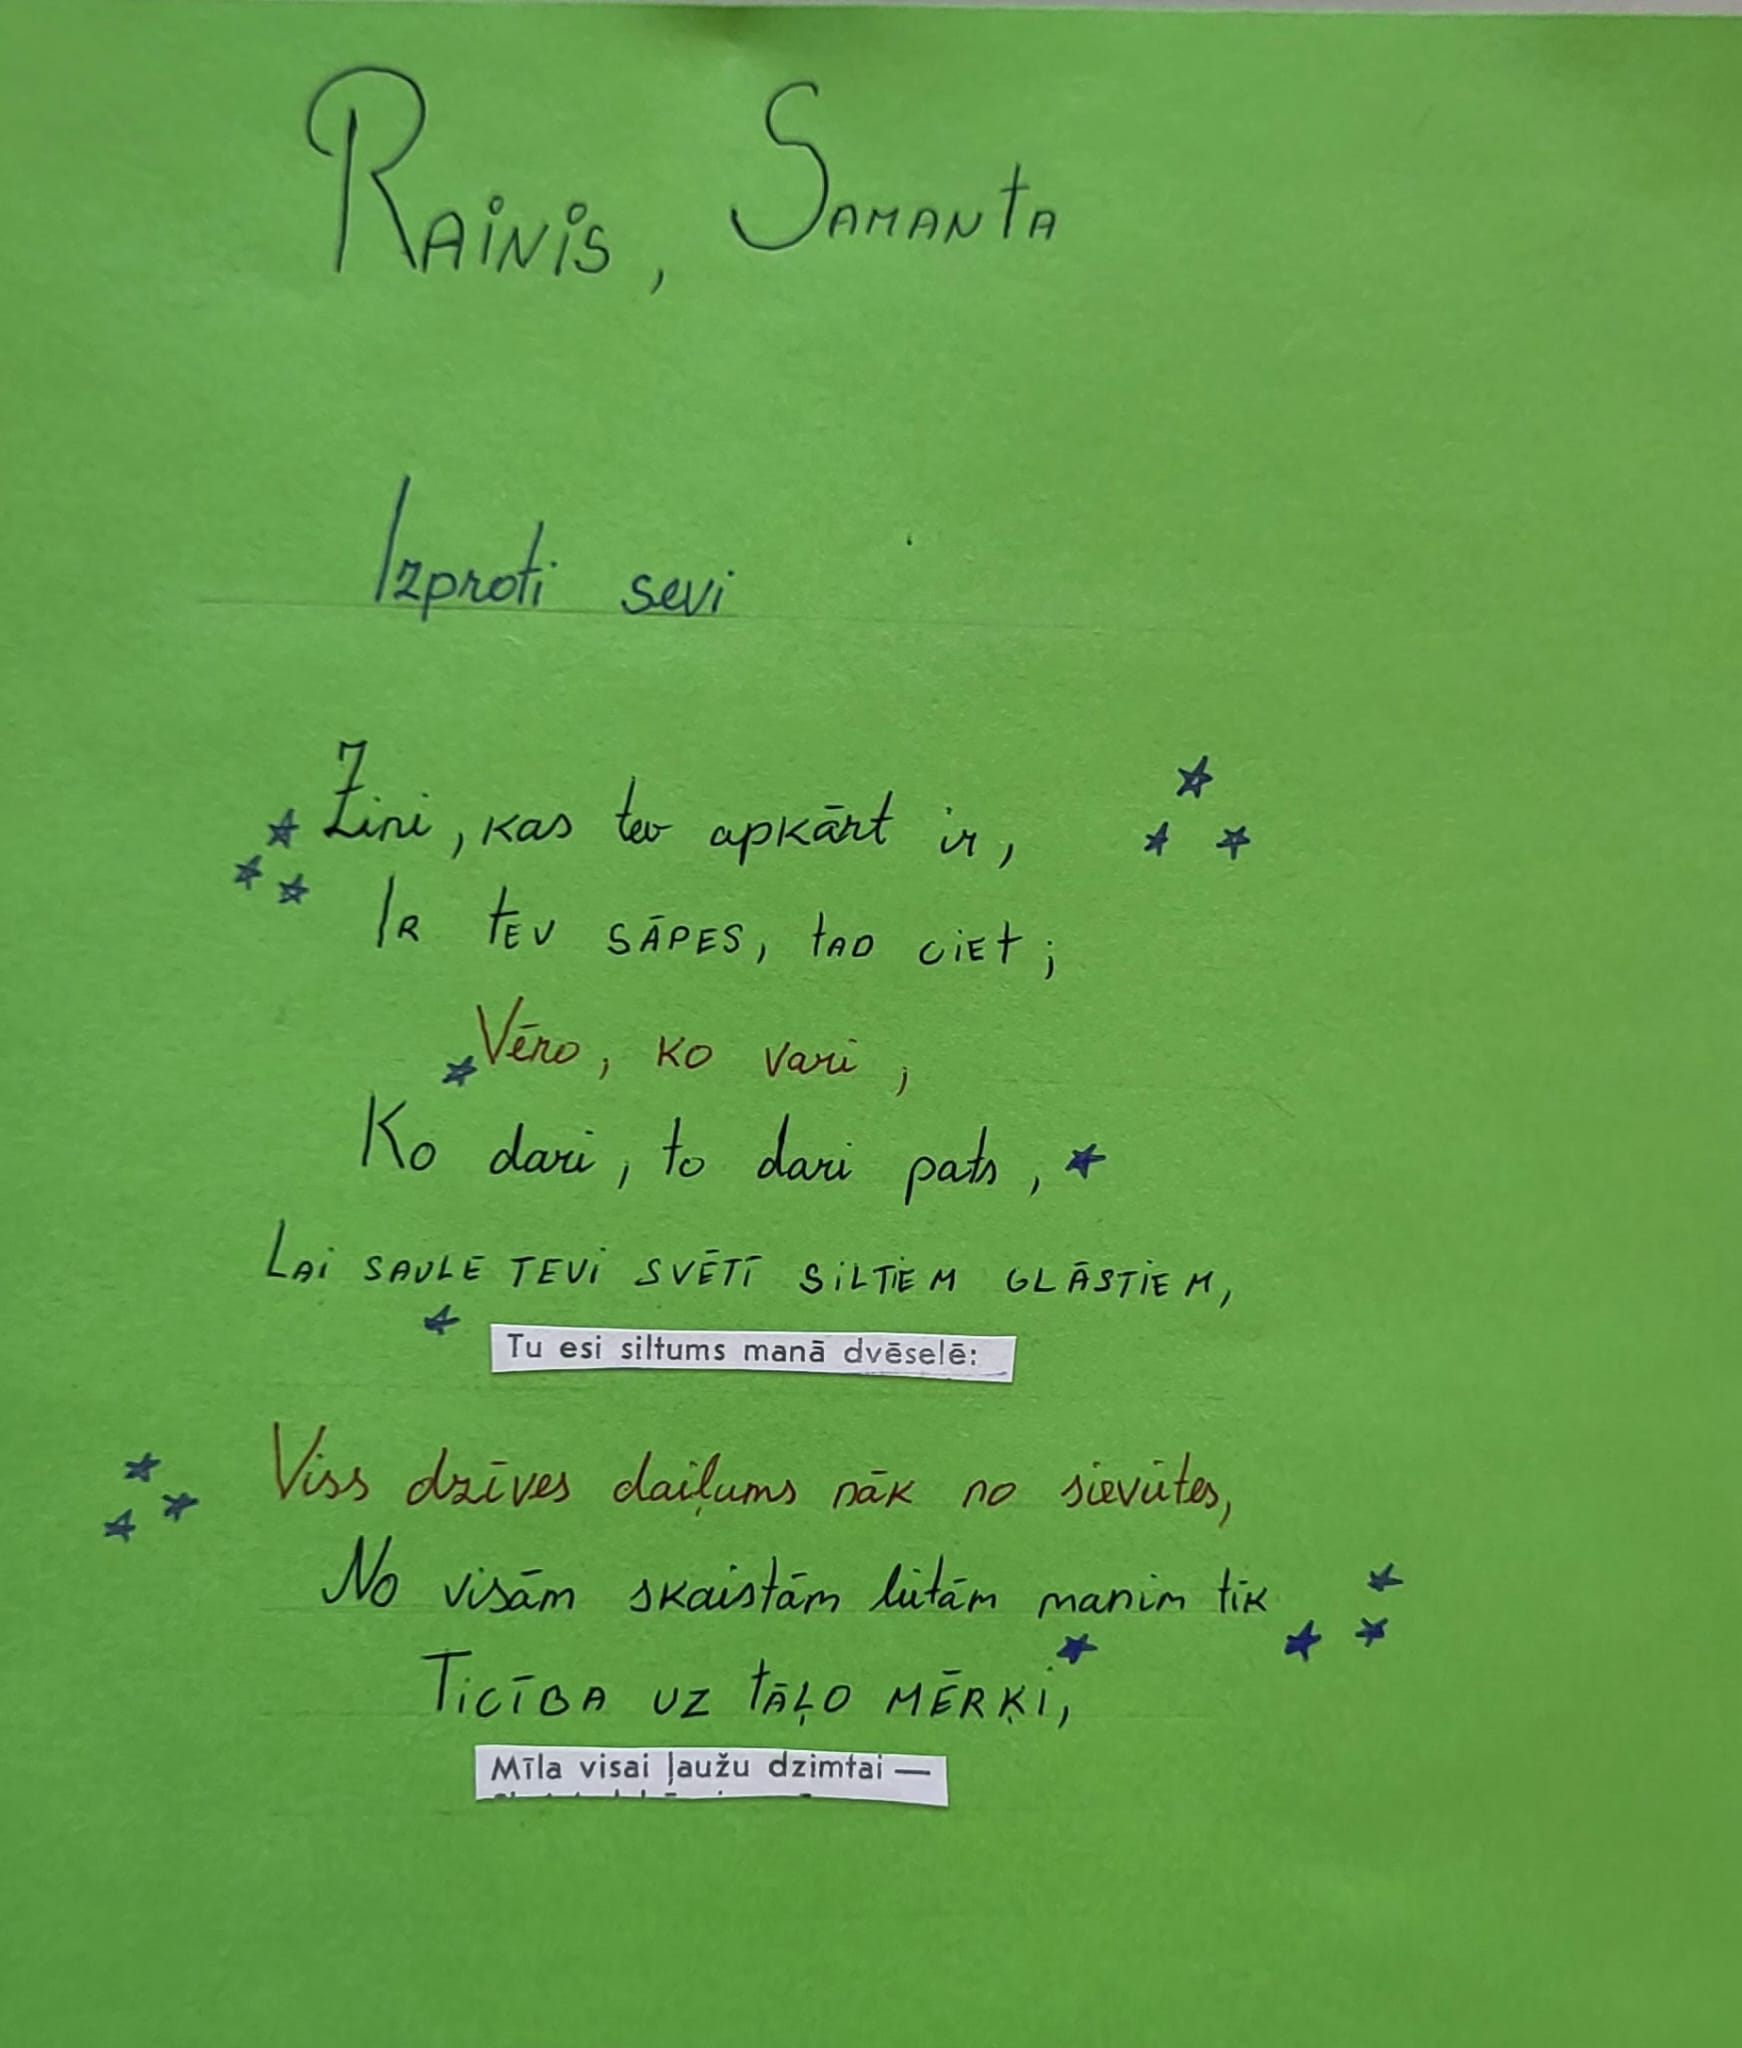 Rainis, Samanta
Izproti sevi
Zini, kas tev apkārt ir,
Ir tev sāpes, tad ciet;
Vēro, ko vari;
Ko dari, to dari pats,
Lai saule tevi svētī siltiem glāstiem,
Tu esi siltums manā dvēselē:
Viss dzīves daiļums nāk no sievietes,
No visām skaistām lietām manim tik
Ticība uz tāļo mērķi,
Mīla visai ļaužu dzimtai —